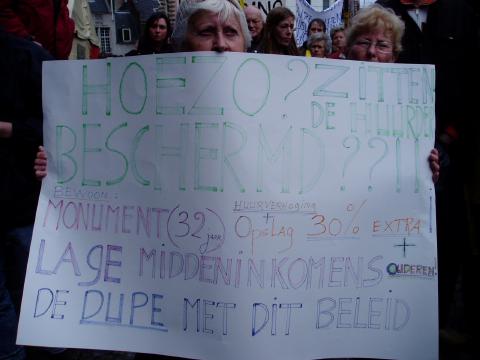 HOEZO? ZITTEN
DE HUURM
BESCHERMD ??!!
BEWOON:
HUURVERHOGING
MONUMENT (32 jaar) + Opslag 30% EXTRA!
+
LAGE MIDDENINKOMENS OUDEREN!
DE DUPE MET DIT BELEID